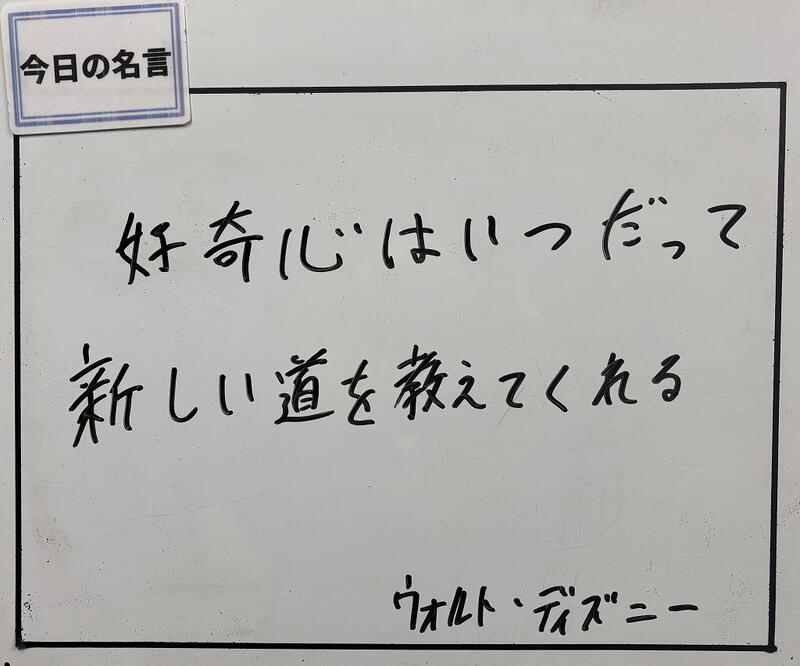 今日の名言
好奇心はいつだって
新しい道を教えてくれる
ウォルト・ディズニー